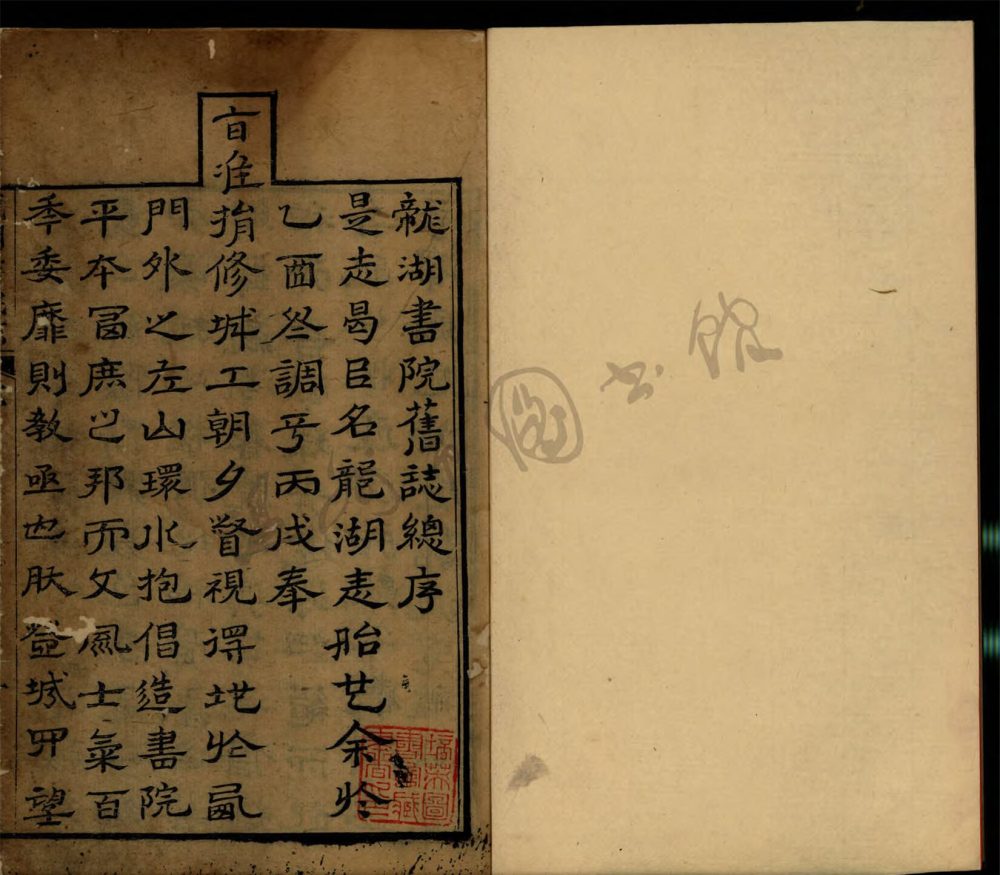 龍湖書院舊誌總序
是志曷㠯名龍湖志始也余於
乙酉冬調乎丙戌奉
旨准捐修城工朝夕督視得地於鳳
門外之左山環水抱倡造書院
平本富庶之邦而文風士氣百
年委靡則教亟也肰登城四望